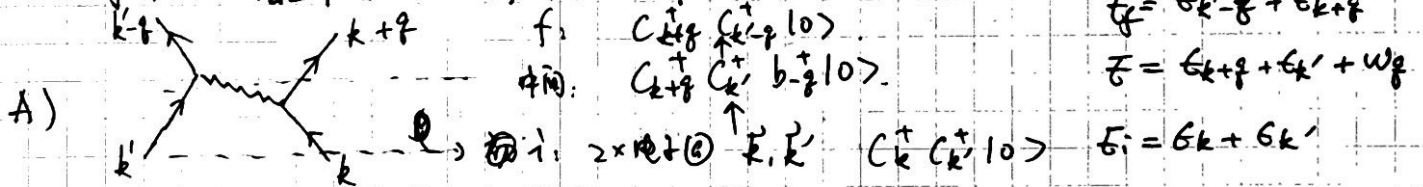 k'-q k+q f: C⁺ₖ₊q C⁺ₖ'₋q |0>. Ef = εₖ'₋q + εₖ₊q
A) 中间: C⁺ₖ₊q C⁺ₖ' b⁺₋q |0>. E = εₖ₊q + εₖ' + ωq
k' k i: 2×电子@ k⃗, k⃗' C⁺ₖ C⁺ₖ' |0> Ei = εₖ + εₖ'